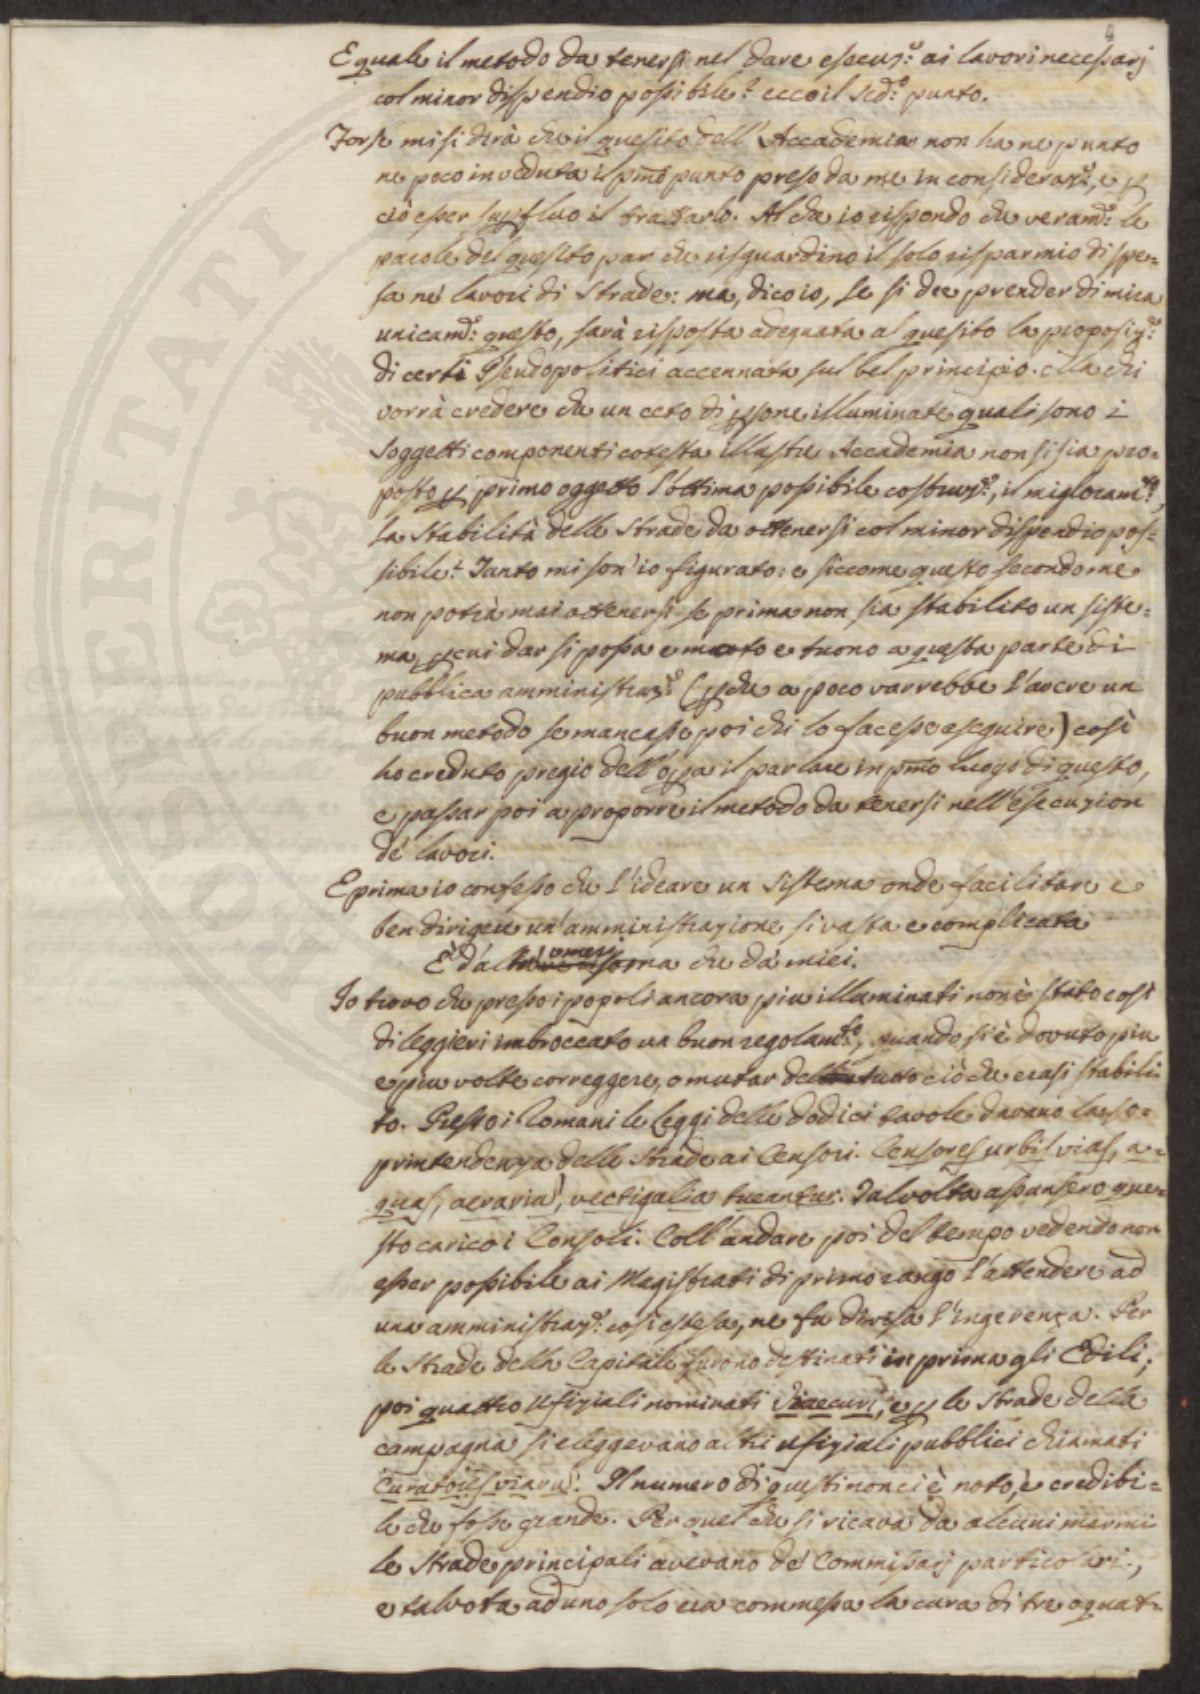 4
E quale il metodo da tenersi nel dare esecuz:e ai lavori necessarj
col minor dispendio possibile? ecco il secd:o punto.
Forse mi si dirà che il quesito dell'Accademia non ha ne punto
ne poco in veduta il pmo punto preso da me in consideraz:e, e p
ciò esser supfluo il trattarlo. Al che io rispondo che veram:e le
parole del quesito par che risguardino il solo risparmio di spe=
sa ne' lavori di strade: ma, dico io, se si dee prender di mira
unicam:e questo, sarà risposta adeguata al quesito la proposiz:e
di certi Pseudopolitici accennata sul bel principio. Ma chi
vorrà credere che un ceto di psone illuminate quali sono i
soggetti componenti cotesta illustre Accademia non si sia pro=
posto p primo oggetto l'ottima possibile costruz:e, il miglioram:to,
la stabilità delle strade da ottenersi col minor dispendio pos=
sibile? Tanto mi son'io figurato: e siccome questo secondo ne
non potrà mai ottenersi se prima non sia stabilito un siste=
ma, p cui dar si possa e moto e tuono a questa parte di
pubblica amministraz:e (pche a poco varrebbe l'avere un
buon metodo se mancasse poi chi lo facesse eseguire) così
ho creduto pregio dell'opa il parlare in pmo luogo di questo,
e passar poi a proporre il metodo da tenersi nell'esecuzion
de' lavori.
E prima io confesso che l'ideare un sistema onde facilitare e
ben dirigere un'amministrazione sì vasta e complicata
omeri
È d'altri soma che da' miei.
Io trovo che presso i popoli ancora piu illuminati non è stato così
di leggieri imbroccato un buon regolam:to, quando si è dovuto piu
e piu volte correggere, o mutar del tutto ciò che erasi stabili=
to. Presso i Romani le Leggi delle dodici tavole davano la so=
printendenza delle strade ai Censori. Censores urbis vias, a=
quas, aeraria, vectigalia tueantur. Talvolta assunsero que=
sto carico i Consoli. Coll'andare poi del tempo vedendo non
esser possibile ai Magistrati di primo rango l'attendere ad
una amministraz:e così estesa, ne fu divisa l'ingerenza. Per
le strade della Capitale furono destinati in prima gli Edili,
poi quattro Ufiziali nominati Viaecuri, e p le strade della
campagna si eleggevano altri ufiziali pubblici chiamati
Curatores viaru. Il numero di questi non ci è noto, è credibi=
le che fosse grande. Per quel che si ricava da alcuni marmi
le strade principali avevano de' Commissarj particolari,
e talvota ad uno solo era commessa la cura di tre o quat=